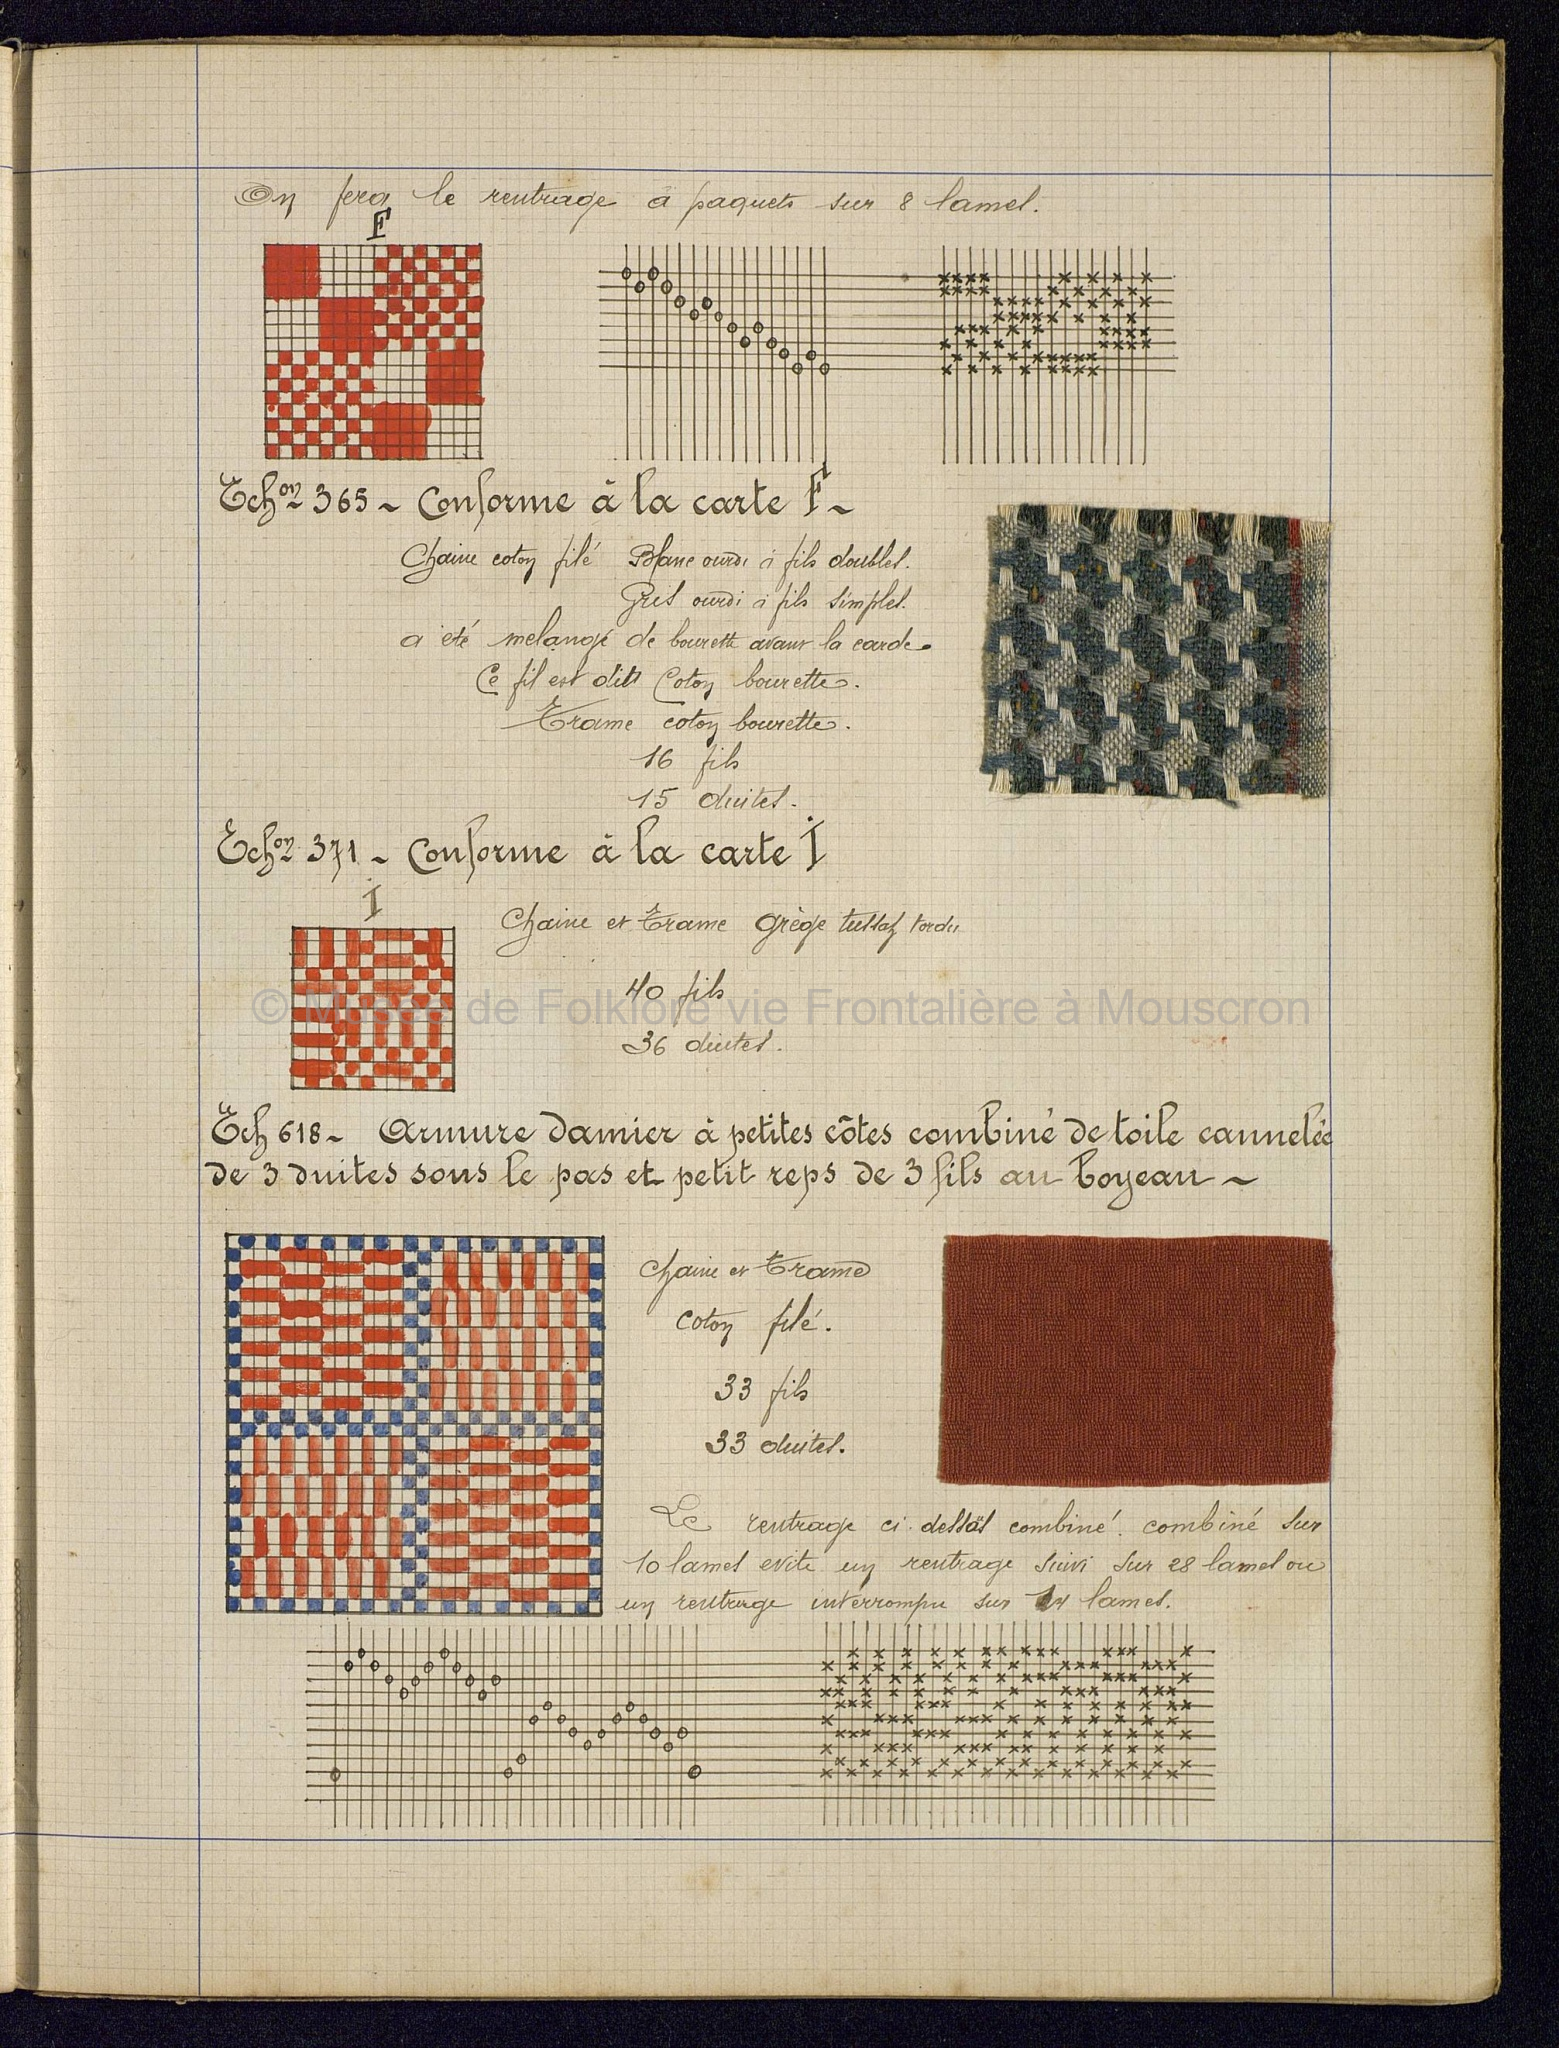 On fera le rentrage à paquets sur 8 lames.
F
Echon 365 ~ Conforme à la carte F ~
Chaine coton filé Blanc ourdi à fils doubles.
Gris ourdi à fils simples.
a été melangé de bourette avant la carde.
Ce fil est dit Coton bourette.
Trame coton bourette.
16 fils
15 duites.
Echon 371 ~ Conforme à la carte I
I
Chaine et Trame Grège tussah tordu
40 fils
© Musée de Folklore vie Frontalière à Mouscron
36 duites.
Ech 618 ~ Armure damier à petites côtes combiné de toile cannelée
de 3 duites sous le pas et petit reps de 3 fils au boyeau ~
Chaine et Trame
coton filé.
33 fils
33 duites.
Le rentrage ci-dessus combiné. combiné sur
10 lames evite un rentrage suivi sur 28 lames ou
un rentrage interrompu sur lames.